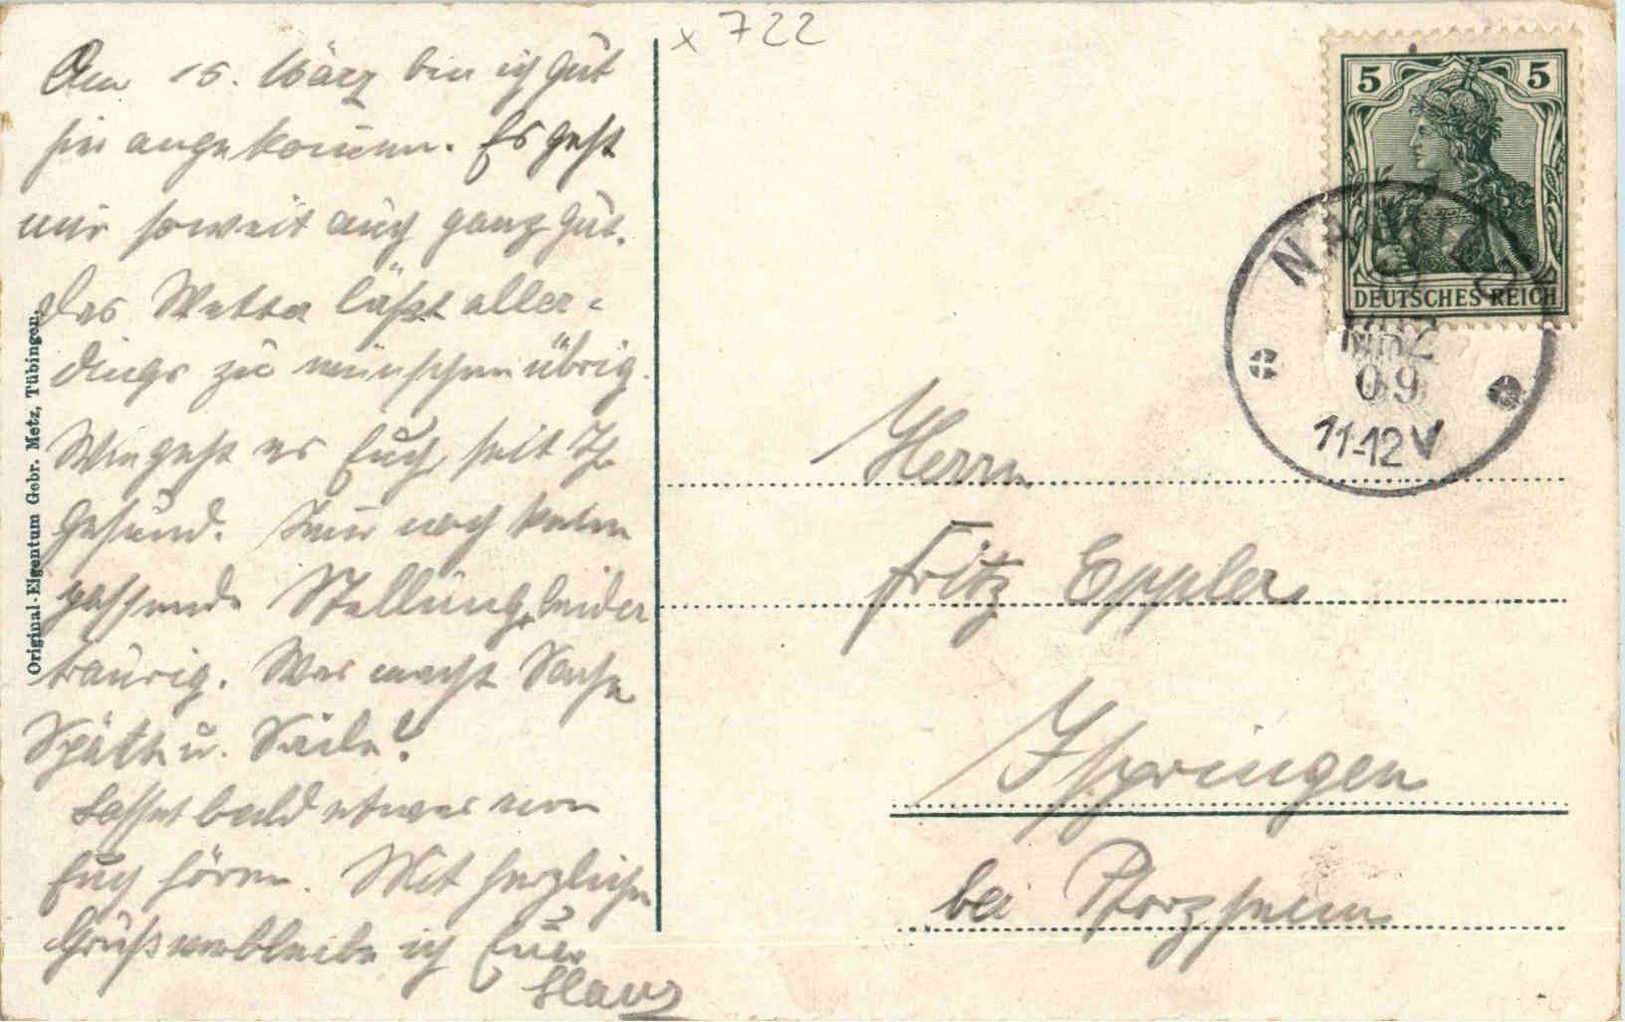 x 722
Am 15. März bin ich gut
hier angekommen. Es geht
mir soweit auch ganz gut.
Das Wetter läßt aller-
dings zu wünschen übrig.
Wie geht es Euch, seit Ihr
Gesund. Habe noch keine
passende Stellung, leider
traurig. Was macht
Späth u.
Lasset bald etwas von
Euch hören. Mit herzlichen
Gruß verbleibe ich Euer
Original-Eigentum Gebr. Metz, Tübingen.
5 5
DEUTSCHES REICH
09
11-12 V
Herrn
Fritz Eppler
Ispringen
bei Pforzheim